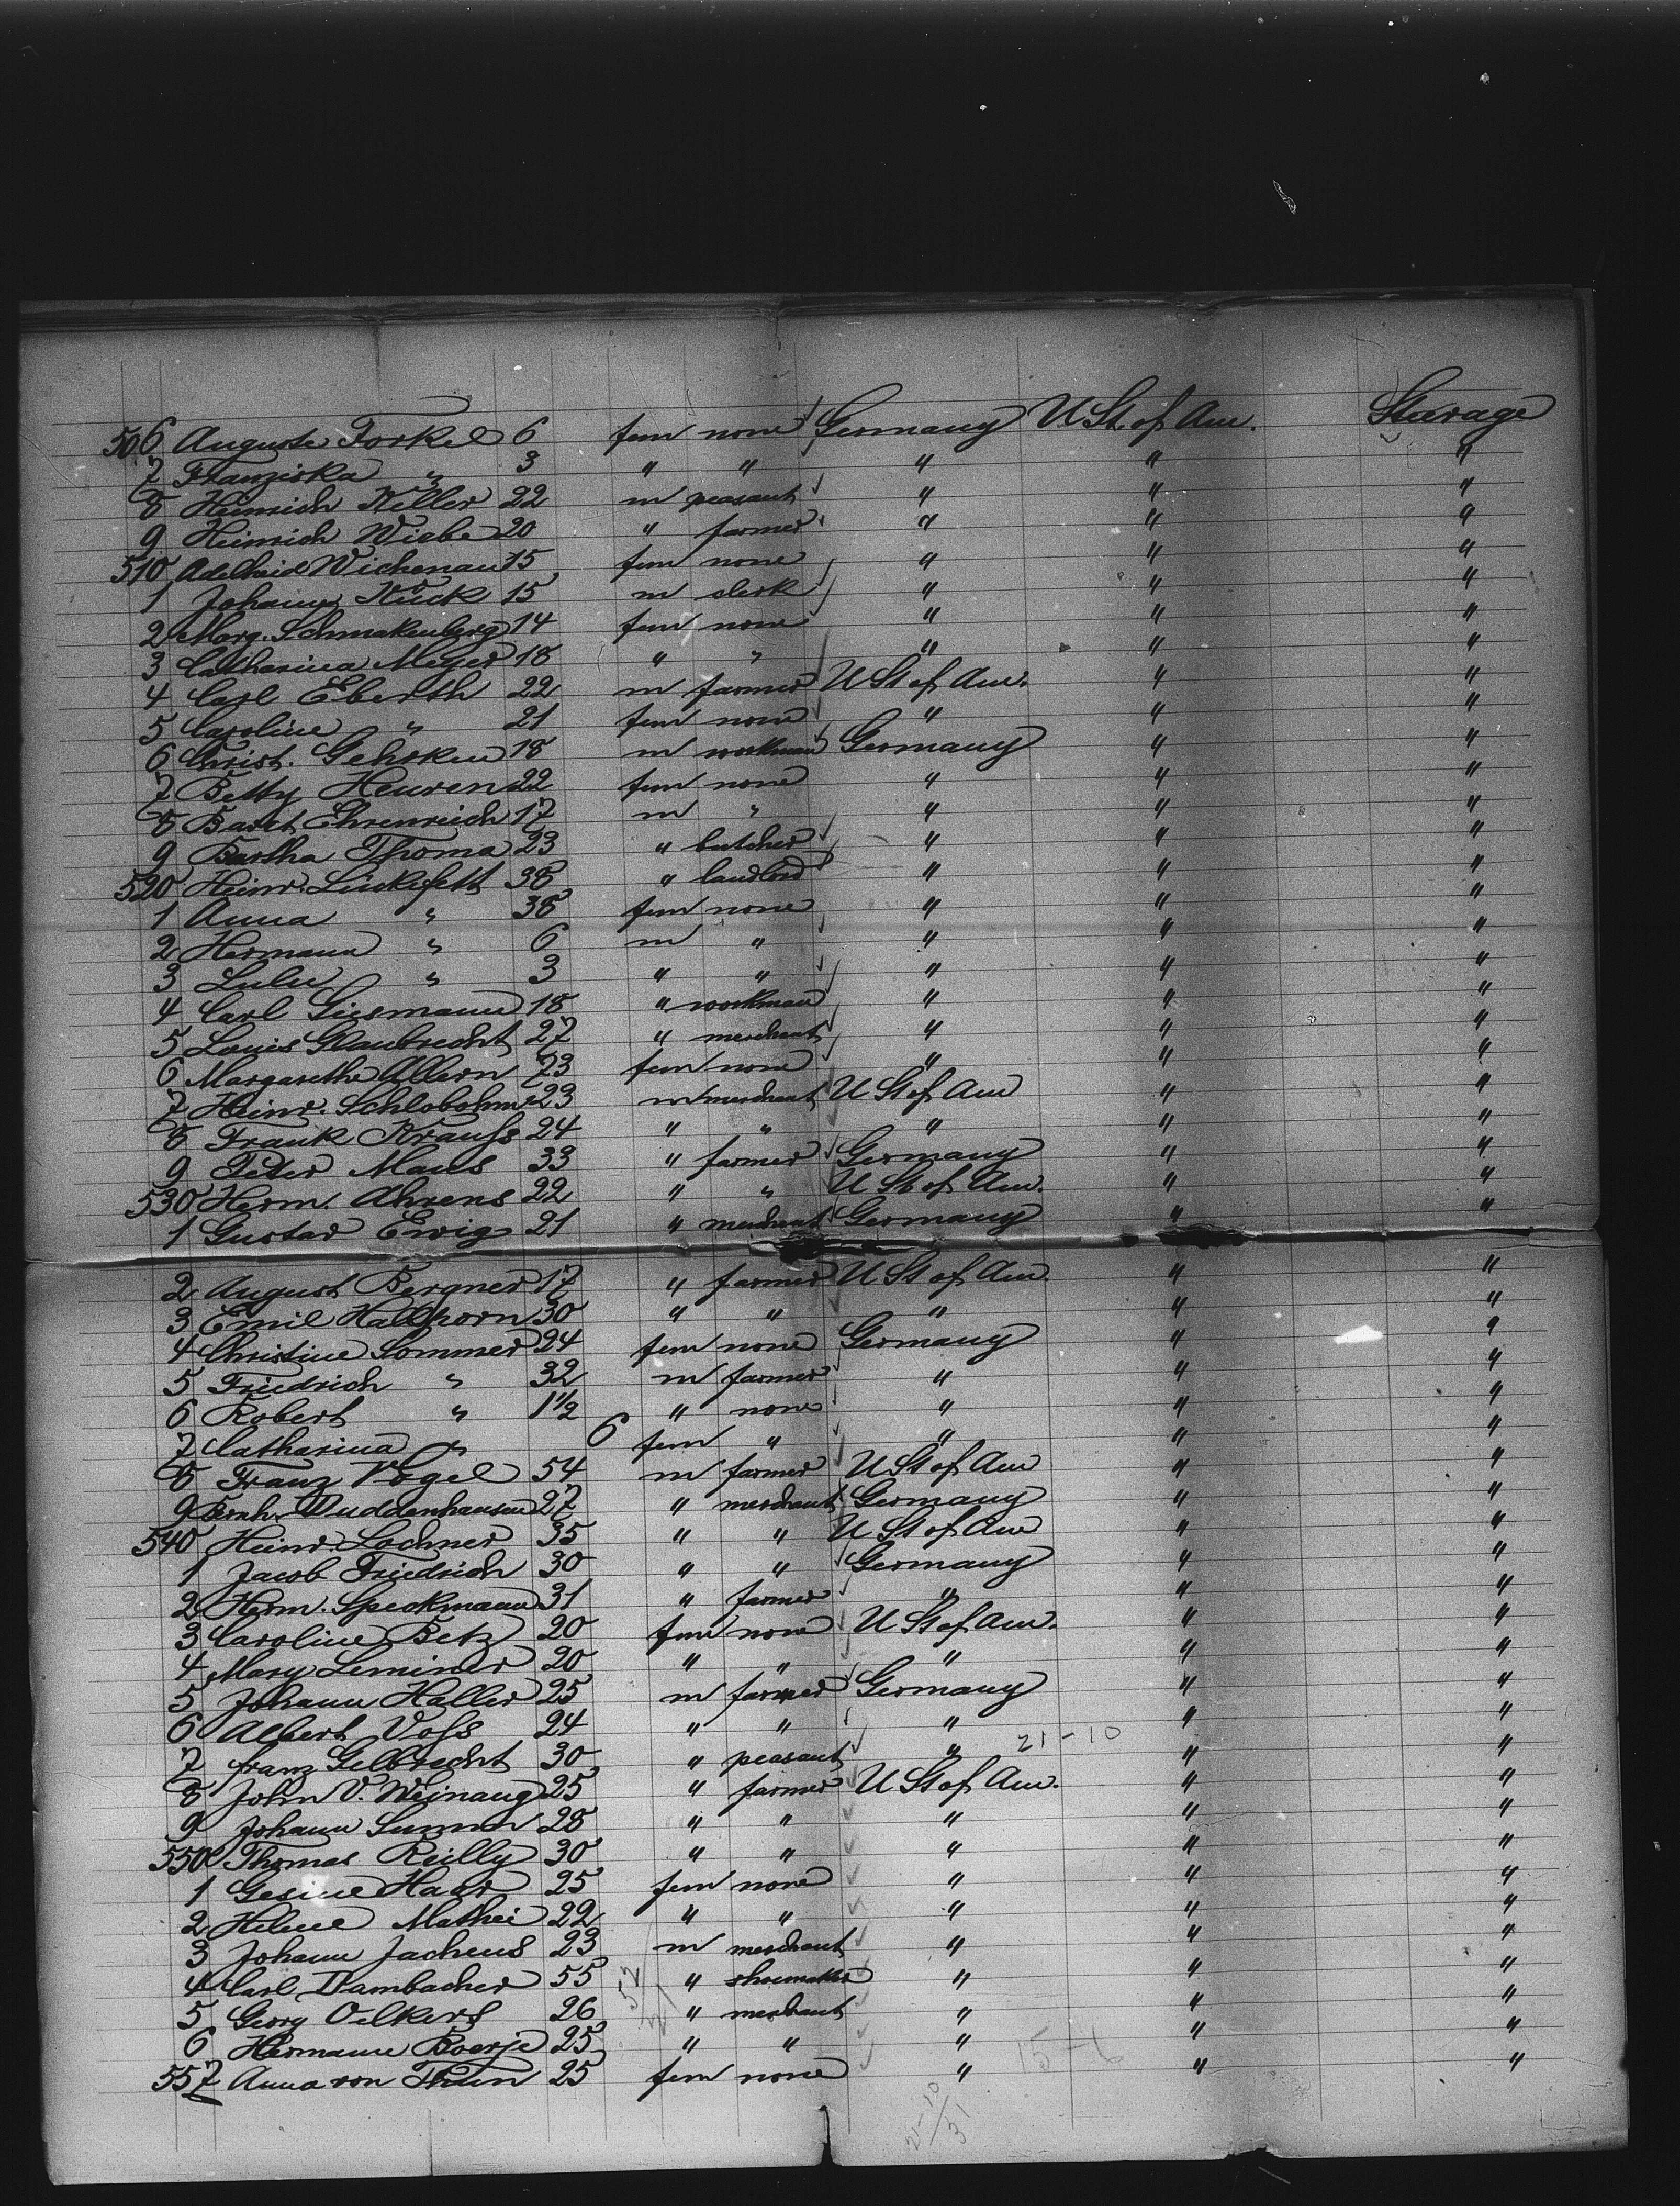 506 Auguste Forkel 6 fem none Germany U St. of Am. Stearage
7 Franziska " 3 " " " " "
8 Heinrich Keller 22 m peasant " " "
9 Heinrich Wiebe 20 " farmer " " "
510 Adelheid Wichenau 15 fem none " " "
1 Johann Kück 15 m clerk " " "
2 Marg. Schmakenberg 14 fem none " " "
3 Catharina Meyer 18 " " " " "
4 Carl Eberth 22 m farmer U St of Am. " "
5 Caroline " 21 fem none " " "
6 Christ. Gehrken 18 m workman Germany " "
7 Betty Heuren 22 fem none " " "
8 Barct Ehrenreich 17 m " " " "
9 Bertha Thoma 23 " butcher " " "
520 Heinr. Lückefett 38 " landlord " " "
1 Anna " 38 fem none " " "
2 Hermann " 6 m " " " "
3 Lulu " 3 " " " " "
4 Carl Giesmann 18 " workman " " "
5 Louis Glaubrecht 27 " merchant " " "
6 Margarethe Allern 23 fem none " " "
7 Heinr. Schlobohm 23 m merchant U St of Am " "
8 Frank Krauss 24 " " " " "
9 Peter Maus 33 " farmer Germany " "
530 Herm. Ahrens 22 " " U St of Am. " "
1 Gustav Ewig 21 " merchant Germany " "
2 August Bergner 17 " farmer U St of Am. " "
3 Emil Hallhorn 30 " " " " "
4 Christine Sommer 24 fem none Germany " "
5 Friedrich " 32 m farmer " " "
6 Robert " 1½ " none " " "
7 Catharina " 6 fem " " " "
8 Franz Vogel 54 m farmer U St of Am " "
9 Bernh. Duddenhausen 27 " merchant Germany " "
540 Heinr. Lochner 35 " " U St of Am " "
1 Jacob Friedrich 30 " " Germany " "
2 Herm. Speckmann 31 " farmer " " "
3 Caroline Betz 20 fem none U St of Am. " "
4 Mary Leminer 20 " " " " "
5 Johann Haller 25 m farmer Germany " "
6 Albert Voss 24 " " " " "
21-10
7 Franz Gelbrecht 30 " peasant " " "
8 John V. Weinaug 25 " farmer U St of Am. " "
9 Johann 28 " " " " "
550 Thomas Reilly 30 " " " " "
1 Gesine Haar 25 fem none " " "
2 Helene Mathei 22 " " " " "
3 Johann Jachens 23 m merchant " " "
4 Carl Dambacher 55 " shoemaker " " "
5 Georg Oelkers 26 " merchant " " "
6 Hermann Boerje 25 " " " " "
15-6
557 Anna von Thun 25 fem none " " "